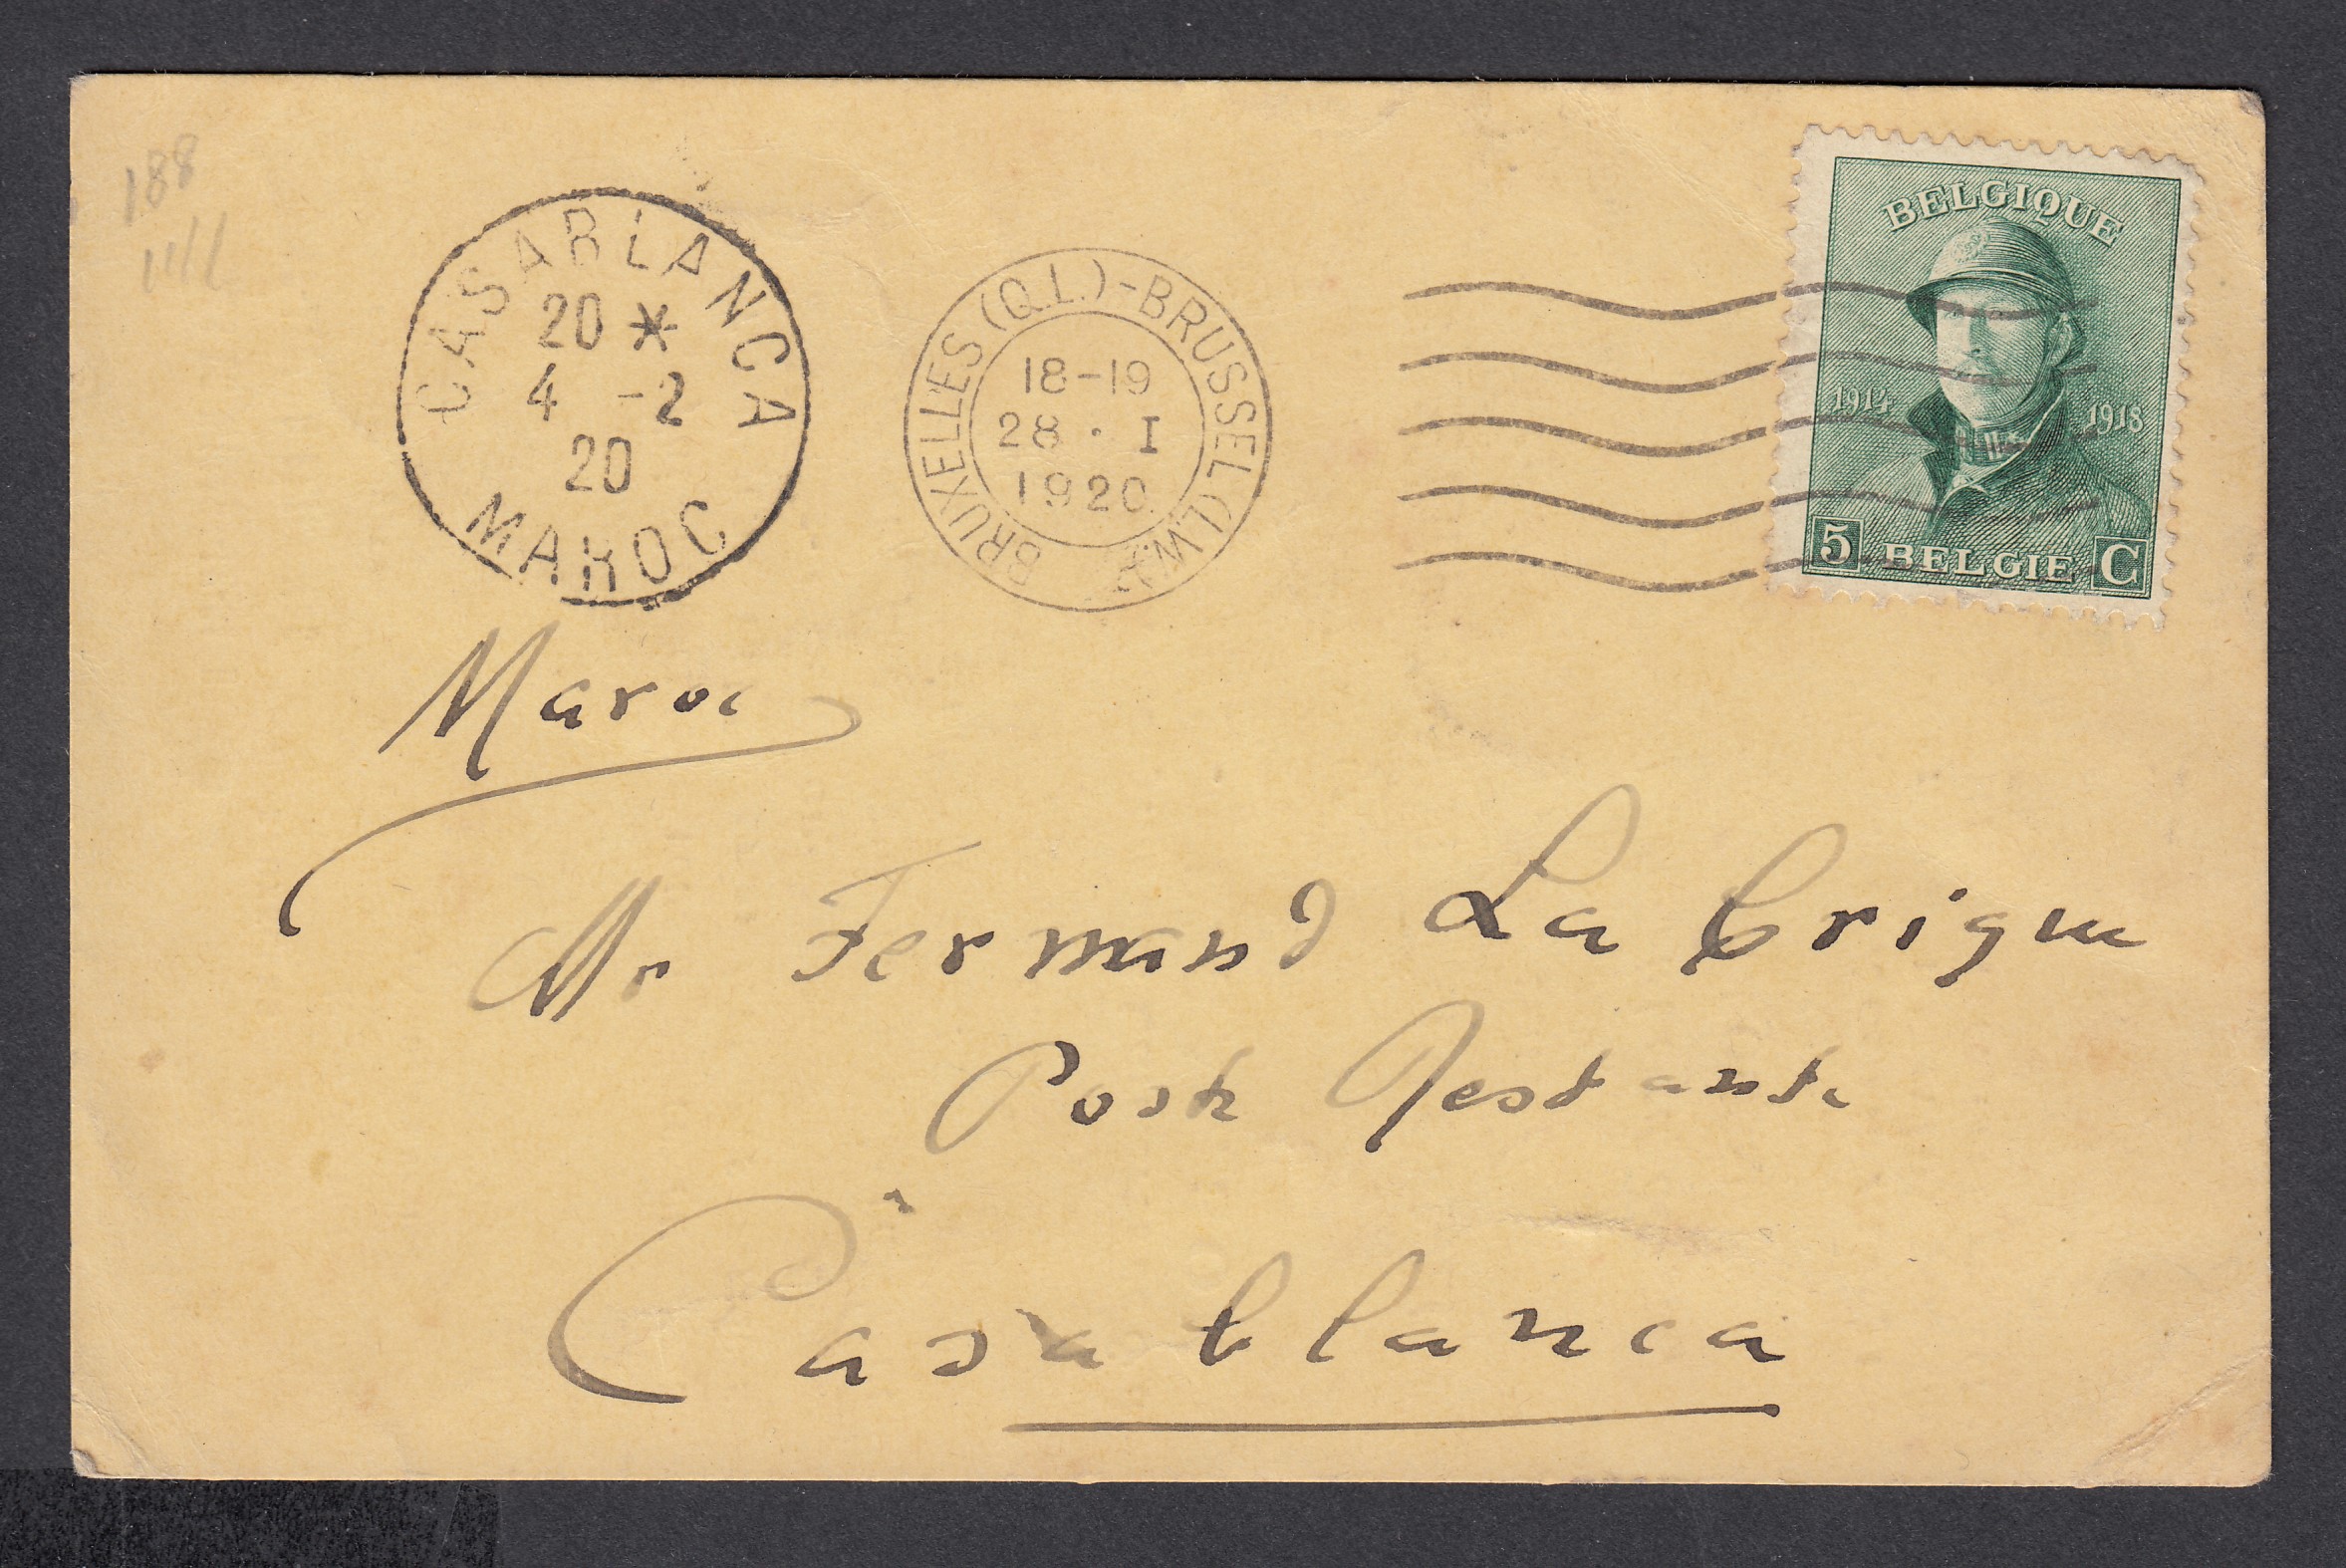 188
CASABLANCA
20 *
4 -2
20
MAROC
BRUXELLES (Q.L.)-BRUSSEL (L.W.)
18-19
28 · I
1920
BELGIQUE
1914 1918
5 BELGIE C
Maroc
Mr Fernand La Crique
Poste Restante
Casablanca